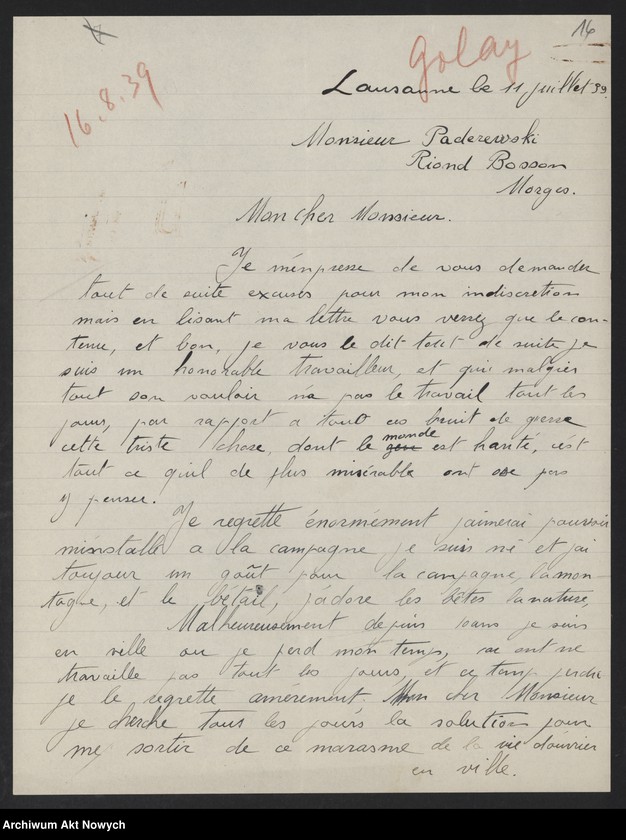 16
golay
16.8.39
Lausanne le 11 juillet 39.
Monsieur Paderewski
Riond Bosson
Morges.
Mon cher Monsieur.
Je m'enpresse de vous demander
tout de suite excuses pour mon indiscretion
mais en lisant ma lettre vous verrez que le con-
tenue, et bon, je vous le dit tout de suite je
suis un honorable travailleur, et qui malgier
tout son vouloir n'a pas le travail tout les
jours, par rapport a tout ces bruit de guerre
cette triste chose, dont le monde est hanté, c'est
tout ce qu'il de plus misérable ont ose pas
y penser.
Je regrette énormément j'aimerai pouvoir
m'installer a la campagne je suis né et j'ai
toujour un goût pour la campagne, la mon-
tagne, et le bétail, j'adore les bêtes la nature,
Malheureusement depuis 10ans je suis
en ville ou je perd mon temps, ont ne
travaille pas tout les jours, et ce temp perdu
je le regrette amèrement. Mon cher Monsieur
je cherche tous les jours la solution pour
me sortir de ce marasme de la vie d'ouvrier
en ville.
Archiwum Akt Nowych